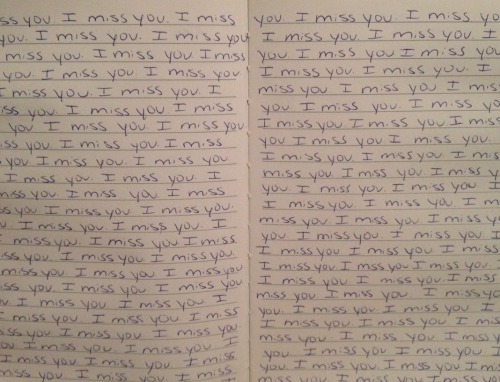 you. I miss you. I miss
you. I miss you. I miss you
miss you. I miss you I miss
you I miss you I miss you
I miss you. I miss you. I
miss you. I miss you I miss
you I miss you. I miss you
miss you. I miss you I miss
you. I miss you. I miss you
I miss you. I miss you. I
miss you. I miss you I miss
miss you I miss you I miss you.
I miss you I miss you. I
miss you. I miss you I miss
miss you. I miss you I miss you.
miss you I miss you I miss you
miss you. I miss you I miss you
I miss you I miss you I
miss you. I miss you I miss
miss you I miss you I miss you
you I miss you. I miss you. I
I miss you. I miss you. I miss
miss you. I miss you I miss
you. I miss you. I miss you. I
I miss you. I miss you I
miss you I miss you I miss
you. I miss you. I miss you. I
I miss you. I miss you. I
miss you I miss you I miss
you I miss you. I miss
I miss you I miss you I miss
you I miss you I miss you
I miss you I miss you I
miss you. I miss you I miss y
you I miss you. I miss you I
I miss you I miss you I miss
miss you. I miss you I miss y
you I miss you. I miss you I
I miss you I miss you I miss
I miss you I miss you I miss you.
I miss you. I miss you. I miss
miss you I miss you. I miss you
you I miss you I miss you
I miss you. I miss you I miss
miss you I miss you I miss you
you. I miss you I miss you I
you. I miss you. I miss you I miss
miss you I miss you I miss